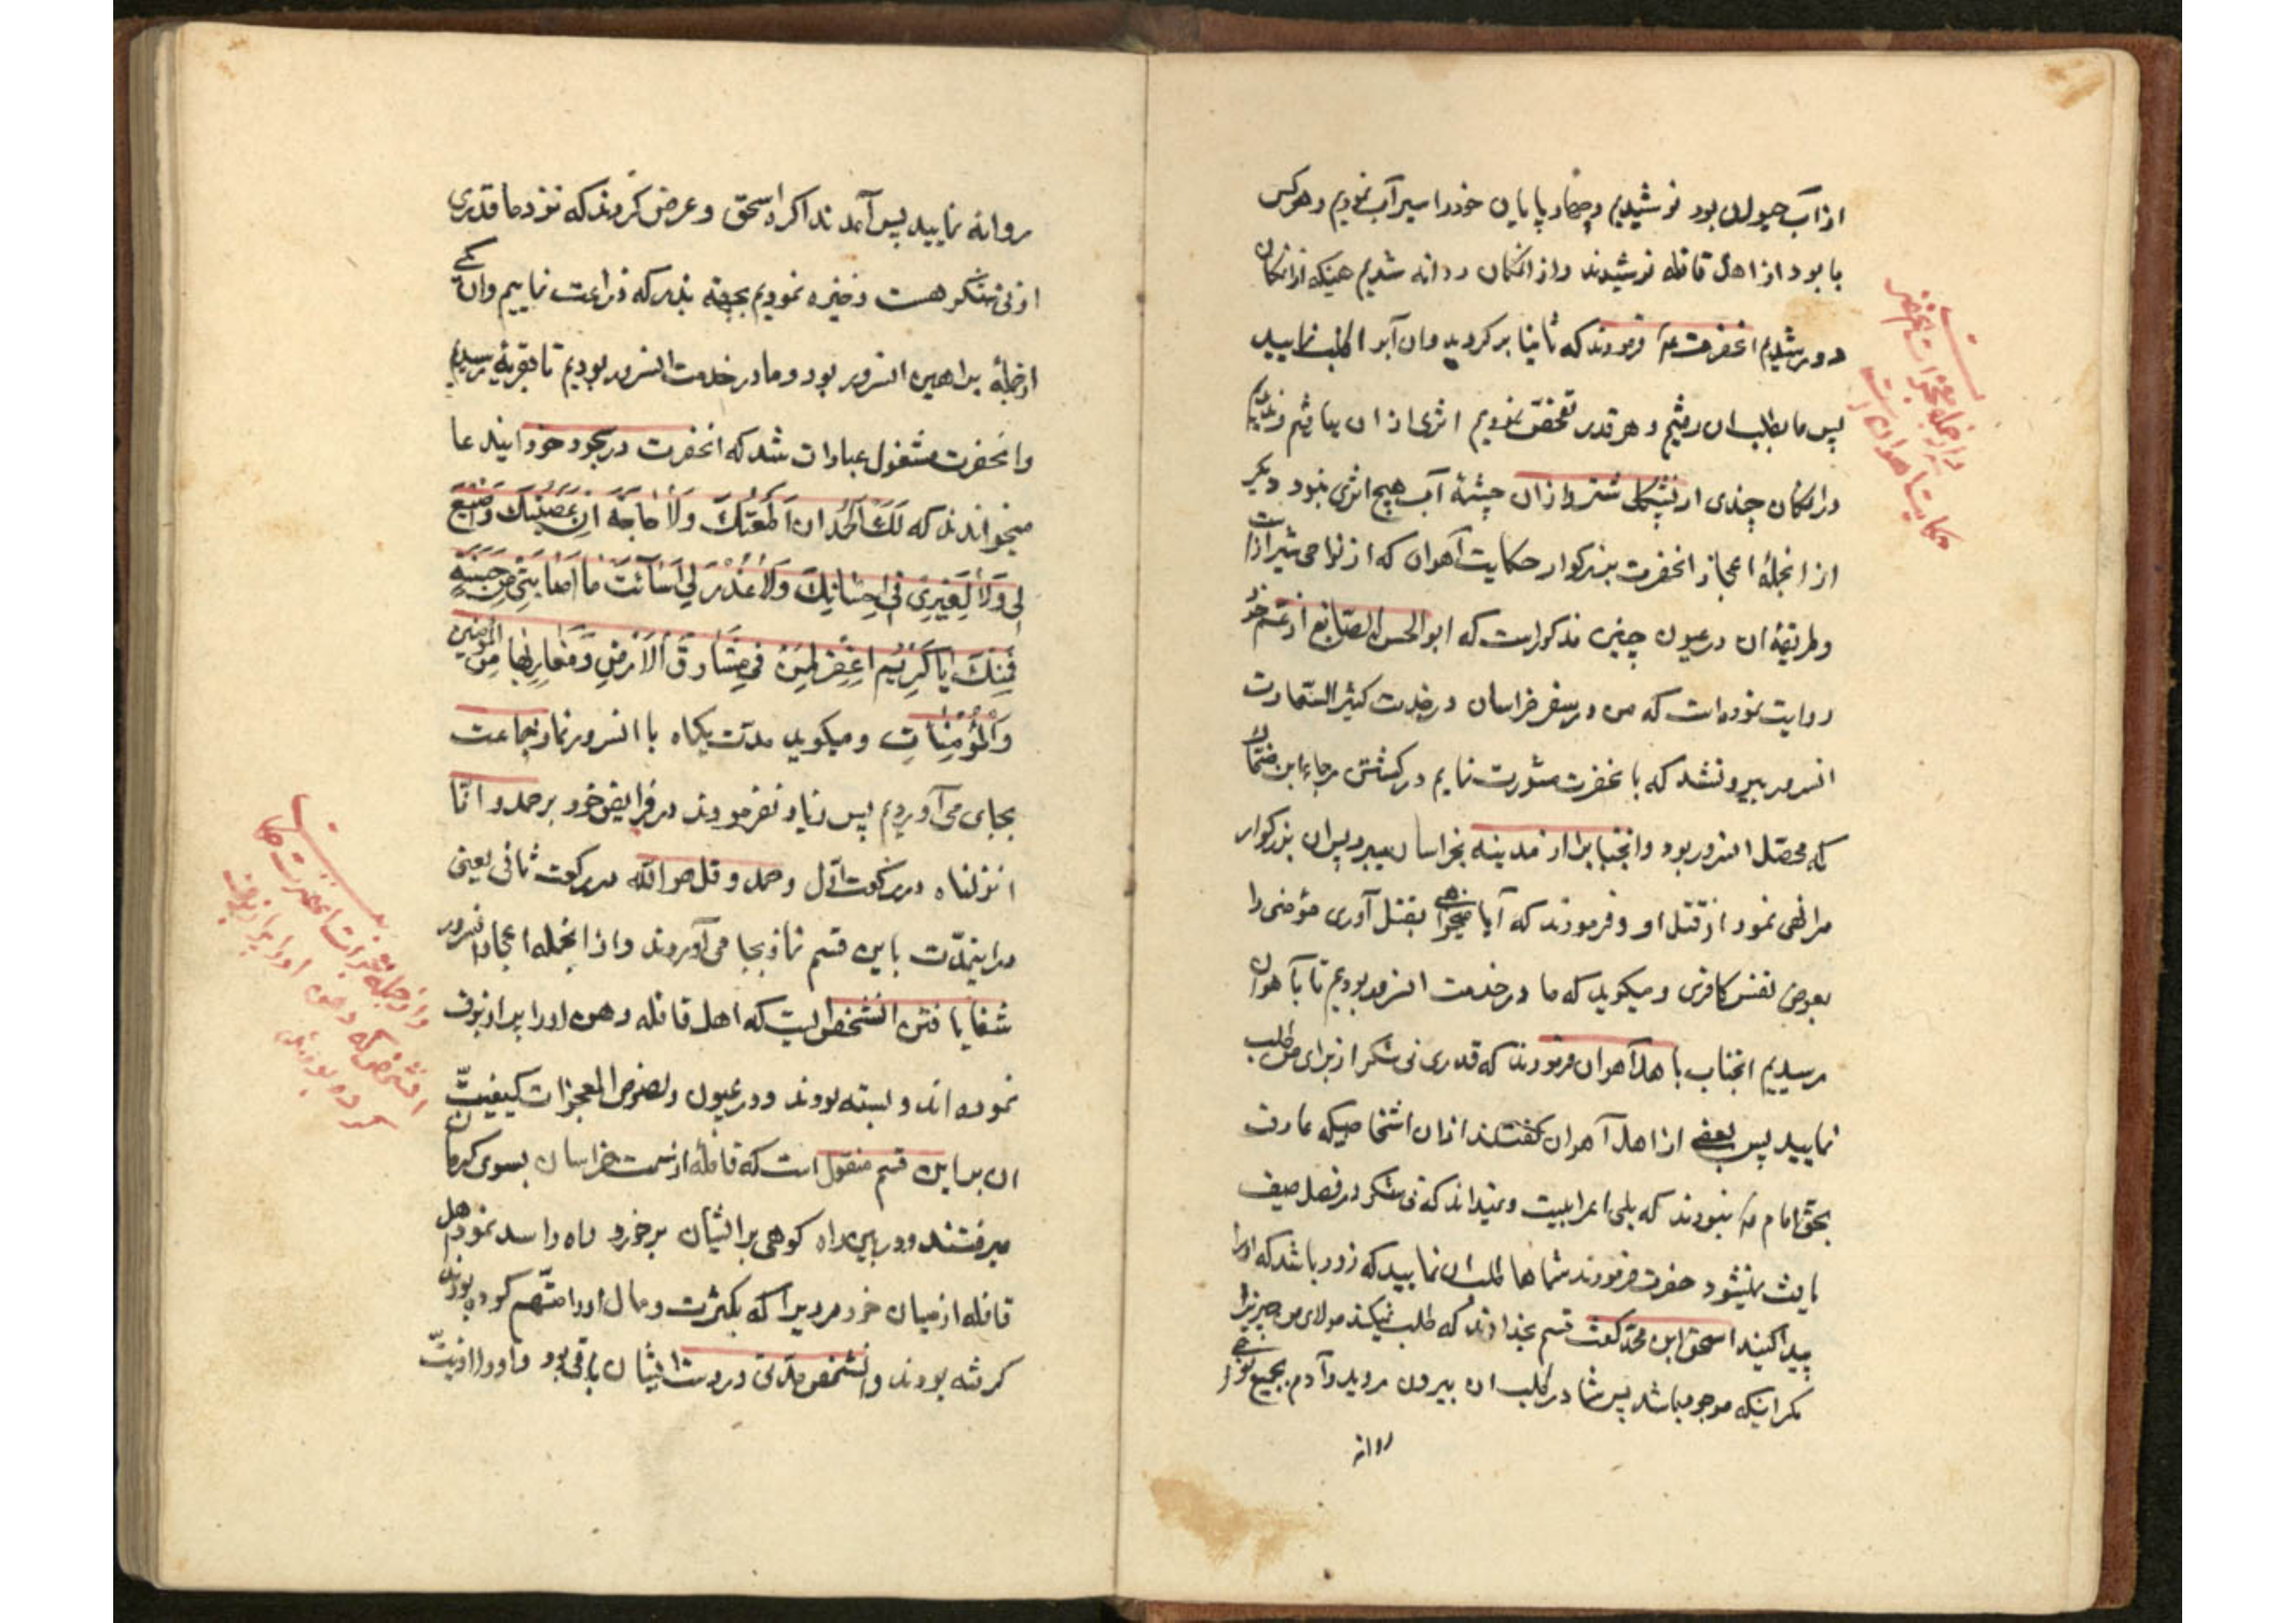 از آب حیوان بود نوشیدیم و چهار پایان خود را سیر آب نمودیم و هر کس
با بود از اهل قافله نوشیدند و از آنمکان روانه شدیم همینکه از آنمکان
دور شدیم آنحضرت فرمودند که ثانیا برگردید و آن آبرا طلب نمایید
پس ما بطلب آن رفتیم و هر قدر تفحّص نمودیم اثری از آن نیافتیم و ندیدیم
در آنمکان چندی از پشکل شتر و از آن چشمهٔ آب هیچ اثری نبود دیگر
از آنجملهٔ اعجاز آنحضرت بزرگوار حکایت آهوان که از نواحی شیراز است
و طریقهٔ آن در عیون چنین مذکور است که ابو الحسن الصایغ از عم خود
روایت نموده است که من در سفر خراسان در خدمت کثیر السّعادت
آنسرور بیرون شد که با آنحضرت مشورت نمایم در کشتن رجاء ابن ضحّاک
که محصّل آنسرور بود و آنجنابرا از مدینه بخراسان میبرد پس آن بزرگوار
مرا نهی نمود از قتل او و فرمودند که آیا میخواهی بقتل آوری مؤمنی را
بعوض نفس کافری و میگوید که ما در خدمت آنسرور بودیم تا بآهوان
رسیدیم آنجناب باهل آهوان فرمودند که قدری نی شکر از برای من طلب
نمایید پس بعضی از اهل آهوان گفتند از آن اشخاصیکه عارف
بحق امام نبودند که بلی اعرابیست و نمیداند که نی شکر در فصل صیف
یافت نمیشود حضرت فرمودند شماها طلب آن نمایید که زود باشد که او را
پیدا کنید اسحق ابن محمّد گفت قسم بخداوند که طلب نمیکند مولای من چیزیرا
مگر اینکه موجود باشد پس شما در طلب آن بیرون روید و آدم بجمیع نواحی
روانه
روانه نمایید پس آمدند اکره اسحق و عرض کردند که نزد ما قدری
از نی شکر هست ذخیره نمودیم بجهة بذر که زراعت نماییم و آن یکی
از جملهٔ براهین آنسرور بود و ما در خدمت آنسرور بودیم تا بقریهٔ رسیدیم
و آنحضرت مشغول عبادات شد که آنحضرت در سجود خود این دعا
میخواندند که لَكَ الْحَمْدُ اِنْ اَطَعْتُكَ وَلَا حَاجَةَ اِنْ عَصَيْتُكَ وَ صُنْعَ
لِي وَلَا لِغَيْرِي فِي اِحْسَانِكَ وَلَا عُذْرَ لِي اَسَأْتُ مَا اَصَابَنِي مِنْ حَسَنَةٍ
فَمِنْكَ يَا كَرِيمُ اِغْفِرْ لِمَنْ فِي مَشَارِقِ الْاَرْضِ وَمَغَارِبِهَا مِنَ الْمُؤْمِنِينَ
وَالْمُؤْمِنَاتِ و میگوید مدّت یکماه با آنسرور نماز بجماعت
بجای می آوردیم پس زیاد نفرمودند در فرایض خود بر حمد و انّا
انزلناه در رکعت اوّل و حمد و قل هو الله در رکعت ثانی یعنی
در اینمدّت باین قسم نماز بجا می آوردند و از آنجمله اعجاز آنسرور
شفا یافتن آنشخصی است که اهل قافله دهن او را پر از برف
نموده اند و بسته بودند و در عیون و لصوص المعجزات کیفیّت
آن بر این قسم منقول است که قافلهٔ از سمت خراسان بسوی کرمان
میرفتند دزد در این راه کوهی برایشان برخورد و راه را سد نمودند اهل
قافله از میان خود مردیرا که بکثرت و مال او را متّهم کرده بودند
گرفته بودند و آنشخص مدّتی در دست ایشان باقی بود و او را اذیّت
و از جمله معجزات آنحضرت
حکایت آهوان است
و از جمله معجزات آنحضرت
آنشخص که دهن او را پر از برف
کرده بودند